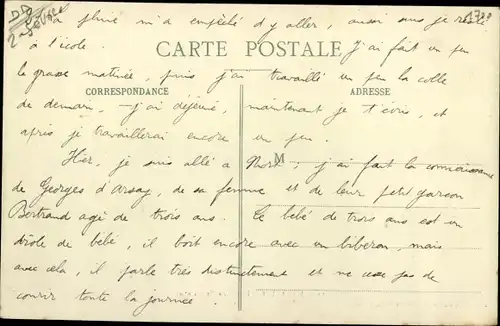 la pluie m'a empêché d'y aller, aussi suis je resté
à l'école.
CARTE POSTALE
J'ai fait un peu
la grasse matinée, puis j'ai travaillé un peu la colle
CORRESPONDANCE
ADRESSE
de demain, - j'ai déjeuné, maintenant je t'écris, et
après je travaillerai encore un peu.
M
Hier, je suis allé à Niort; j'ai fait la connaissance
de Georges d'Arsay, de sa femme et de leur petit garçon
Bertrand agé de trois ans. Ce bébé de trois ans est un
drôle de bébé, il boit encore avec un biberon, mais
avec cela, il parle très distinctement et ne cesse pas de
courir toute la journée.